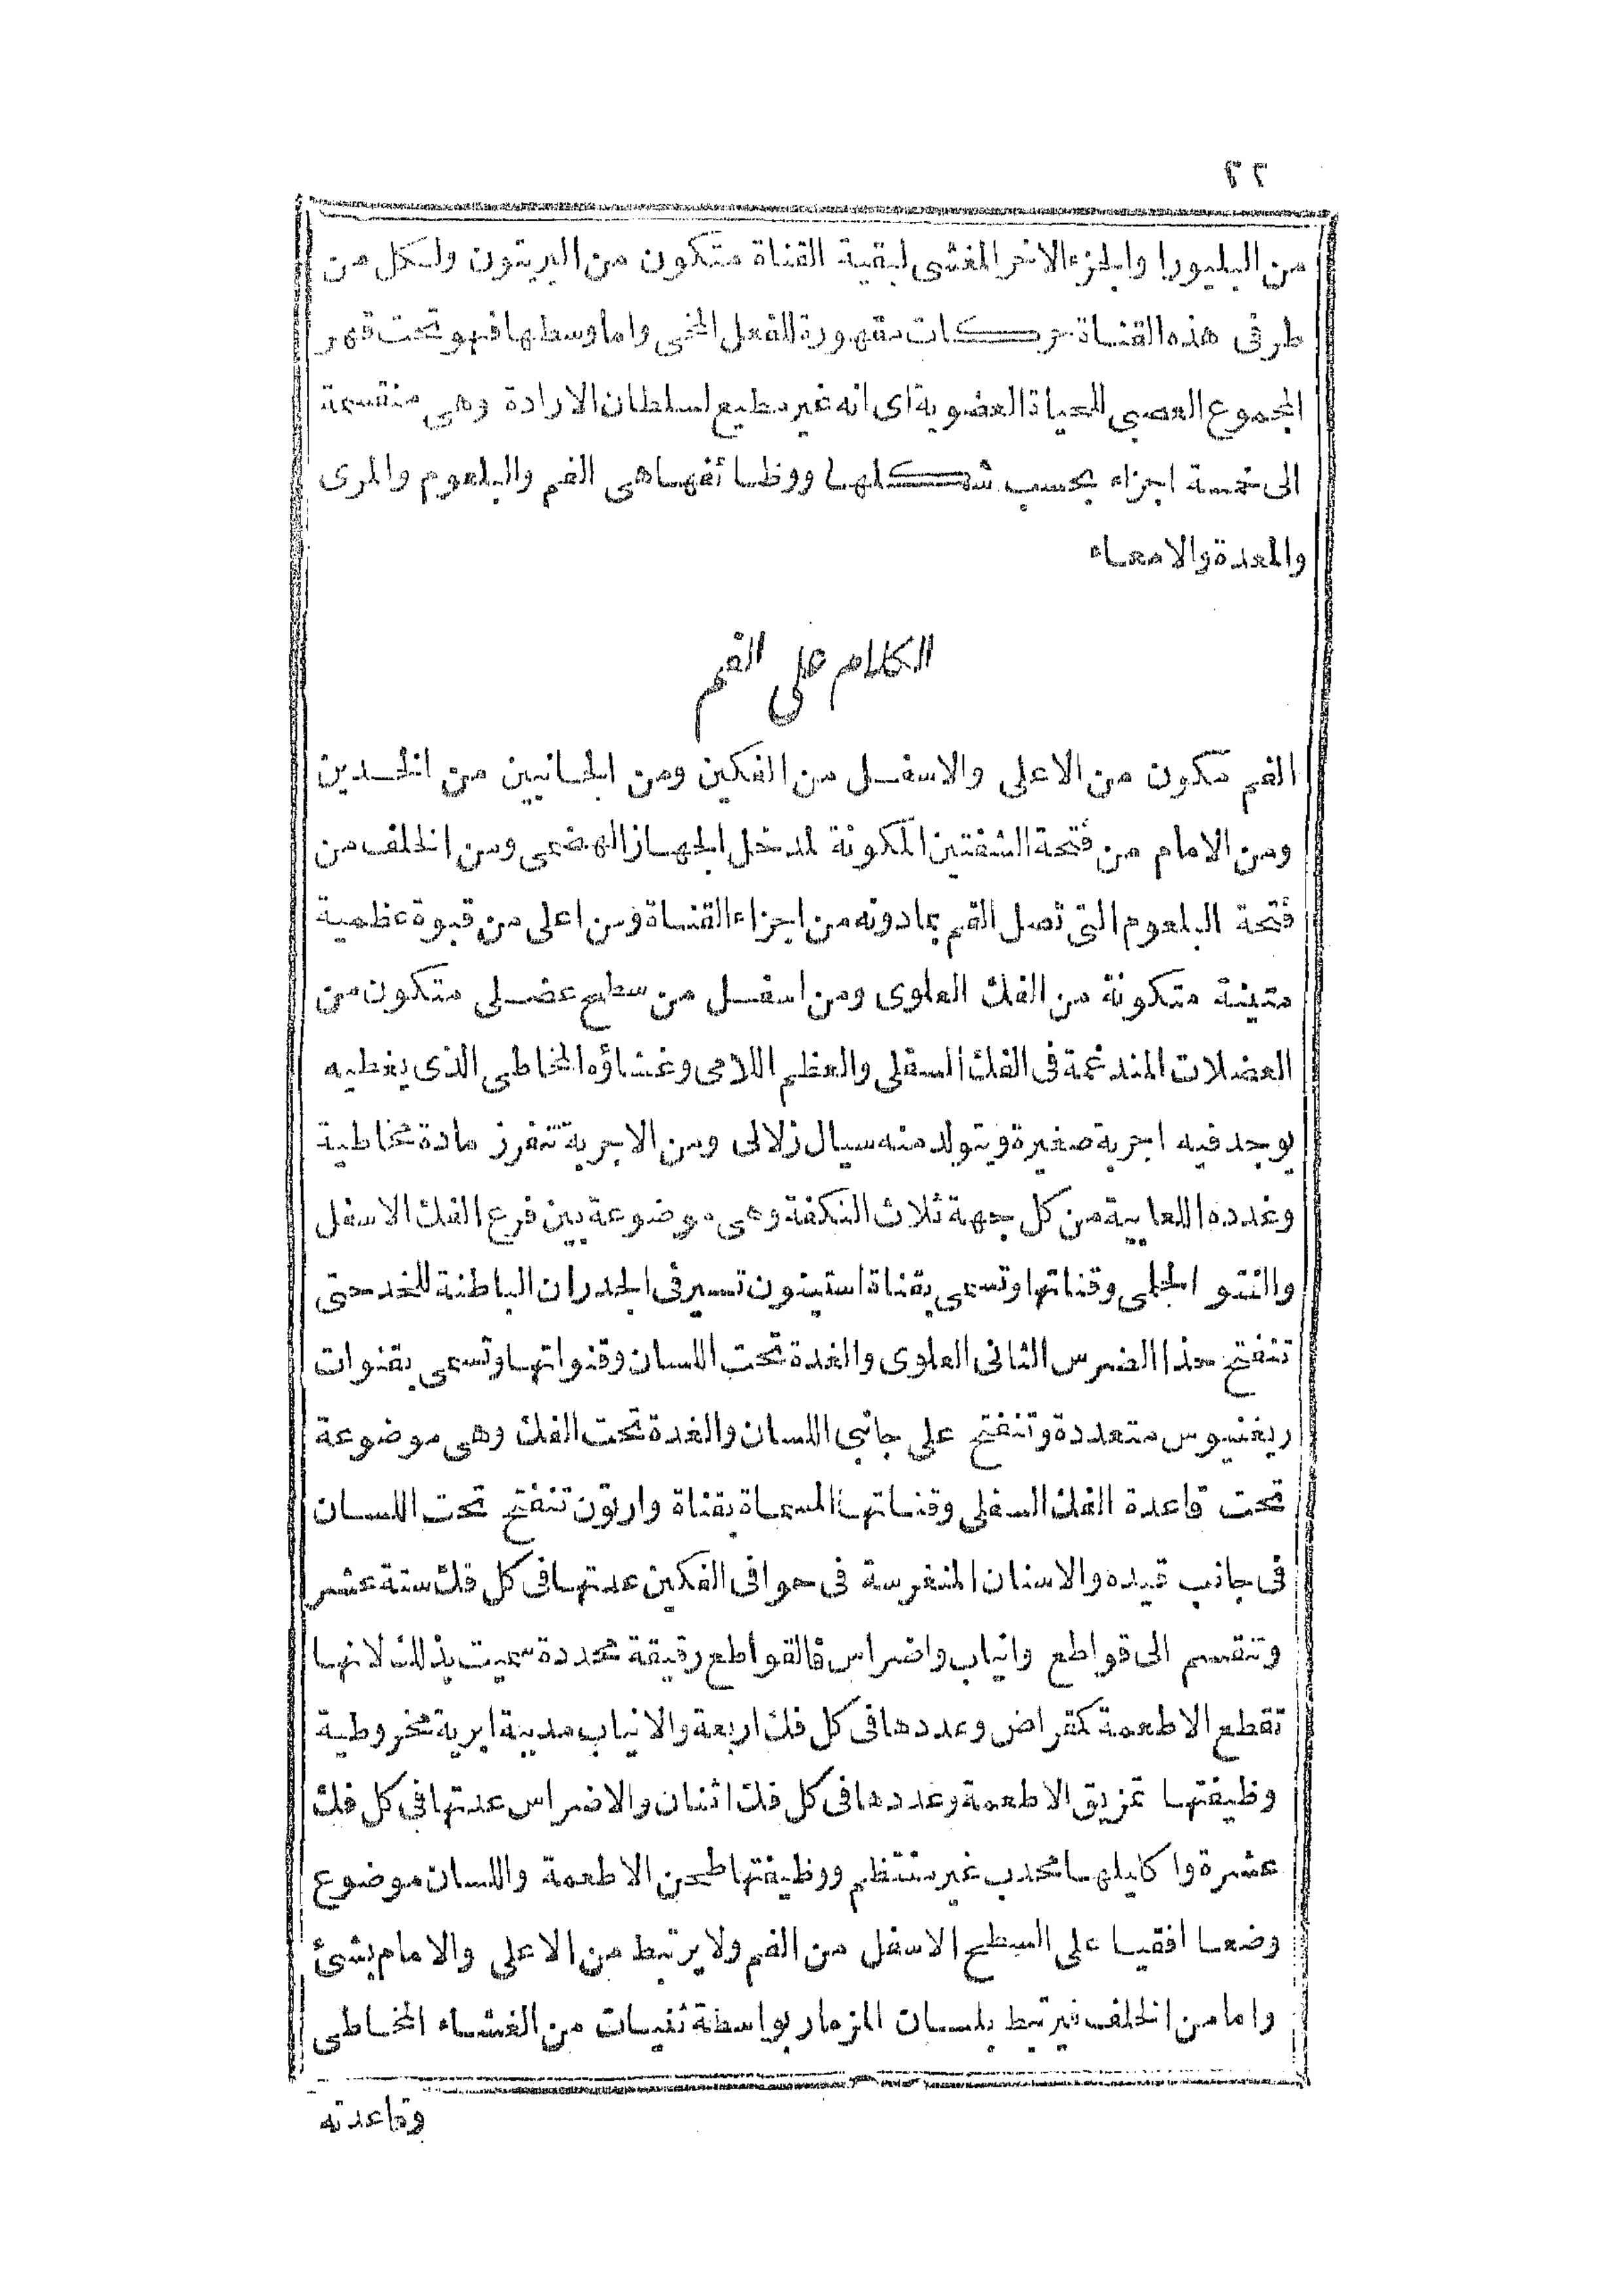 من البليورا والجزء الاخر المغشى لبقية القناة متكون من البريتون ولكل من
طرفى هذه القناة حركات مقهورة للفعل المخى واما وسطها فهو تحت قهر
المجموع العصبى للحياة العضوية اى انه غير مطيع لسلطان الارادة وهى منقسمة
الى خمسة اجزاء بحسب شكلها ووظائفها هى الفم والبلعوم والمرى
والمعدة والامعاء
الكلام على الفم
الفم مكون من الاعلى والاسفل من الفكين ومن الجانبين من الخدين
ومن الامام من فتحة الشفتين المكونة لمدخل الجهاز الهضمى ومن الخلف من
فتحة البلعوم التى تصل الفم بمادونه من اجزاء القناة ومن اعلى من قبوة عظمية
متينة متكونة من الفك العلوى ومن اسفل من سطح عضلى متكون من
العضلات المندغمة فى الفك السفلى والعظم اللامى وغشاؤه المخاطى الذى يغطيه
يوجد فيه اجربة صغيرة ويتولد منه سيال زلالى ومن الاجربة تنفرز مادة مخاطية
وغدده اللعابية من كل جهة ثلاث النكفة وهى موضوعة بين فرع الفك الاسفل
والنتو الحلمى وقناتها وتسمى بقناة استينون تسير فى الجدران الباطنة للخد حتى
تنفتح حذا الضرس الثانى العلوى والغدة تحت اللسان وقنواتها وتسمى بقنوات
ريغنيوس متعددة وتنفتح على جانبى اللسان والغدة تحت الفك وهى موضوعة
تحت قاعدة الفك السفلى وقناتها المسماة بقناة وارتون تنفتح تحت اللسان
فى جانب قيده والاسنان المنغرسة فى حوافى الفكين عدتها فى كل فك ستة عشر
وتنقسم الى قواطع وانياب واضراس فالقواطع رقيقة محددة سميت بذلك لانها
تقطع الاطعمة كمقراض وعددها فى كل فك اربعة والانياب مدببة ابرية مخروطية
وظيفتها تمزيق الاطعمة وعددها فى كل فك اثنان والاضراس عدتها فى كل فك
عشرة واكليلها محدب غير منتظم ووظيفتها طحن الاطعمة واللسان موضوع
وضعا افقيا على السطح الاسفل من الفم ولا يرتبط من الاعلى والامام بشئ
واما من الخلف فيرتبط بلسان المزمار بواسطة ثنيات من الغشاء المخاطى
وقاعدته